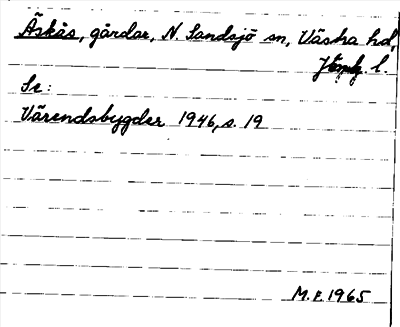 Äskås, gårdar, N. Sandsjö sn, Västra hd,
Jönk. l.
Se:
Värendsbygder 1946, s. 19
M.E. 1965